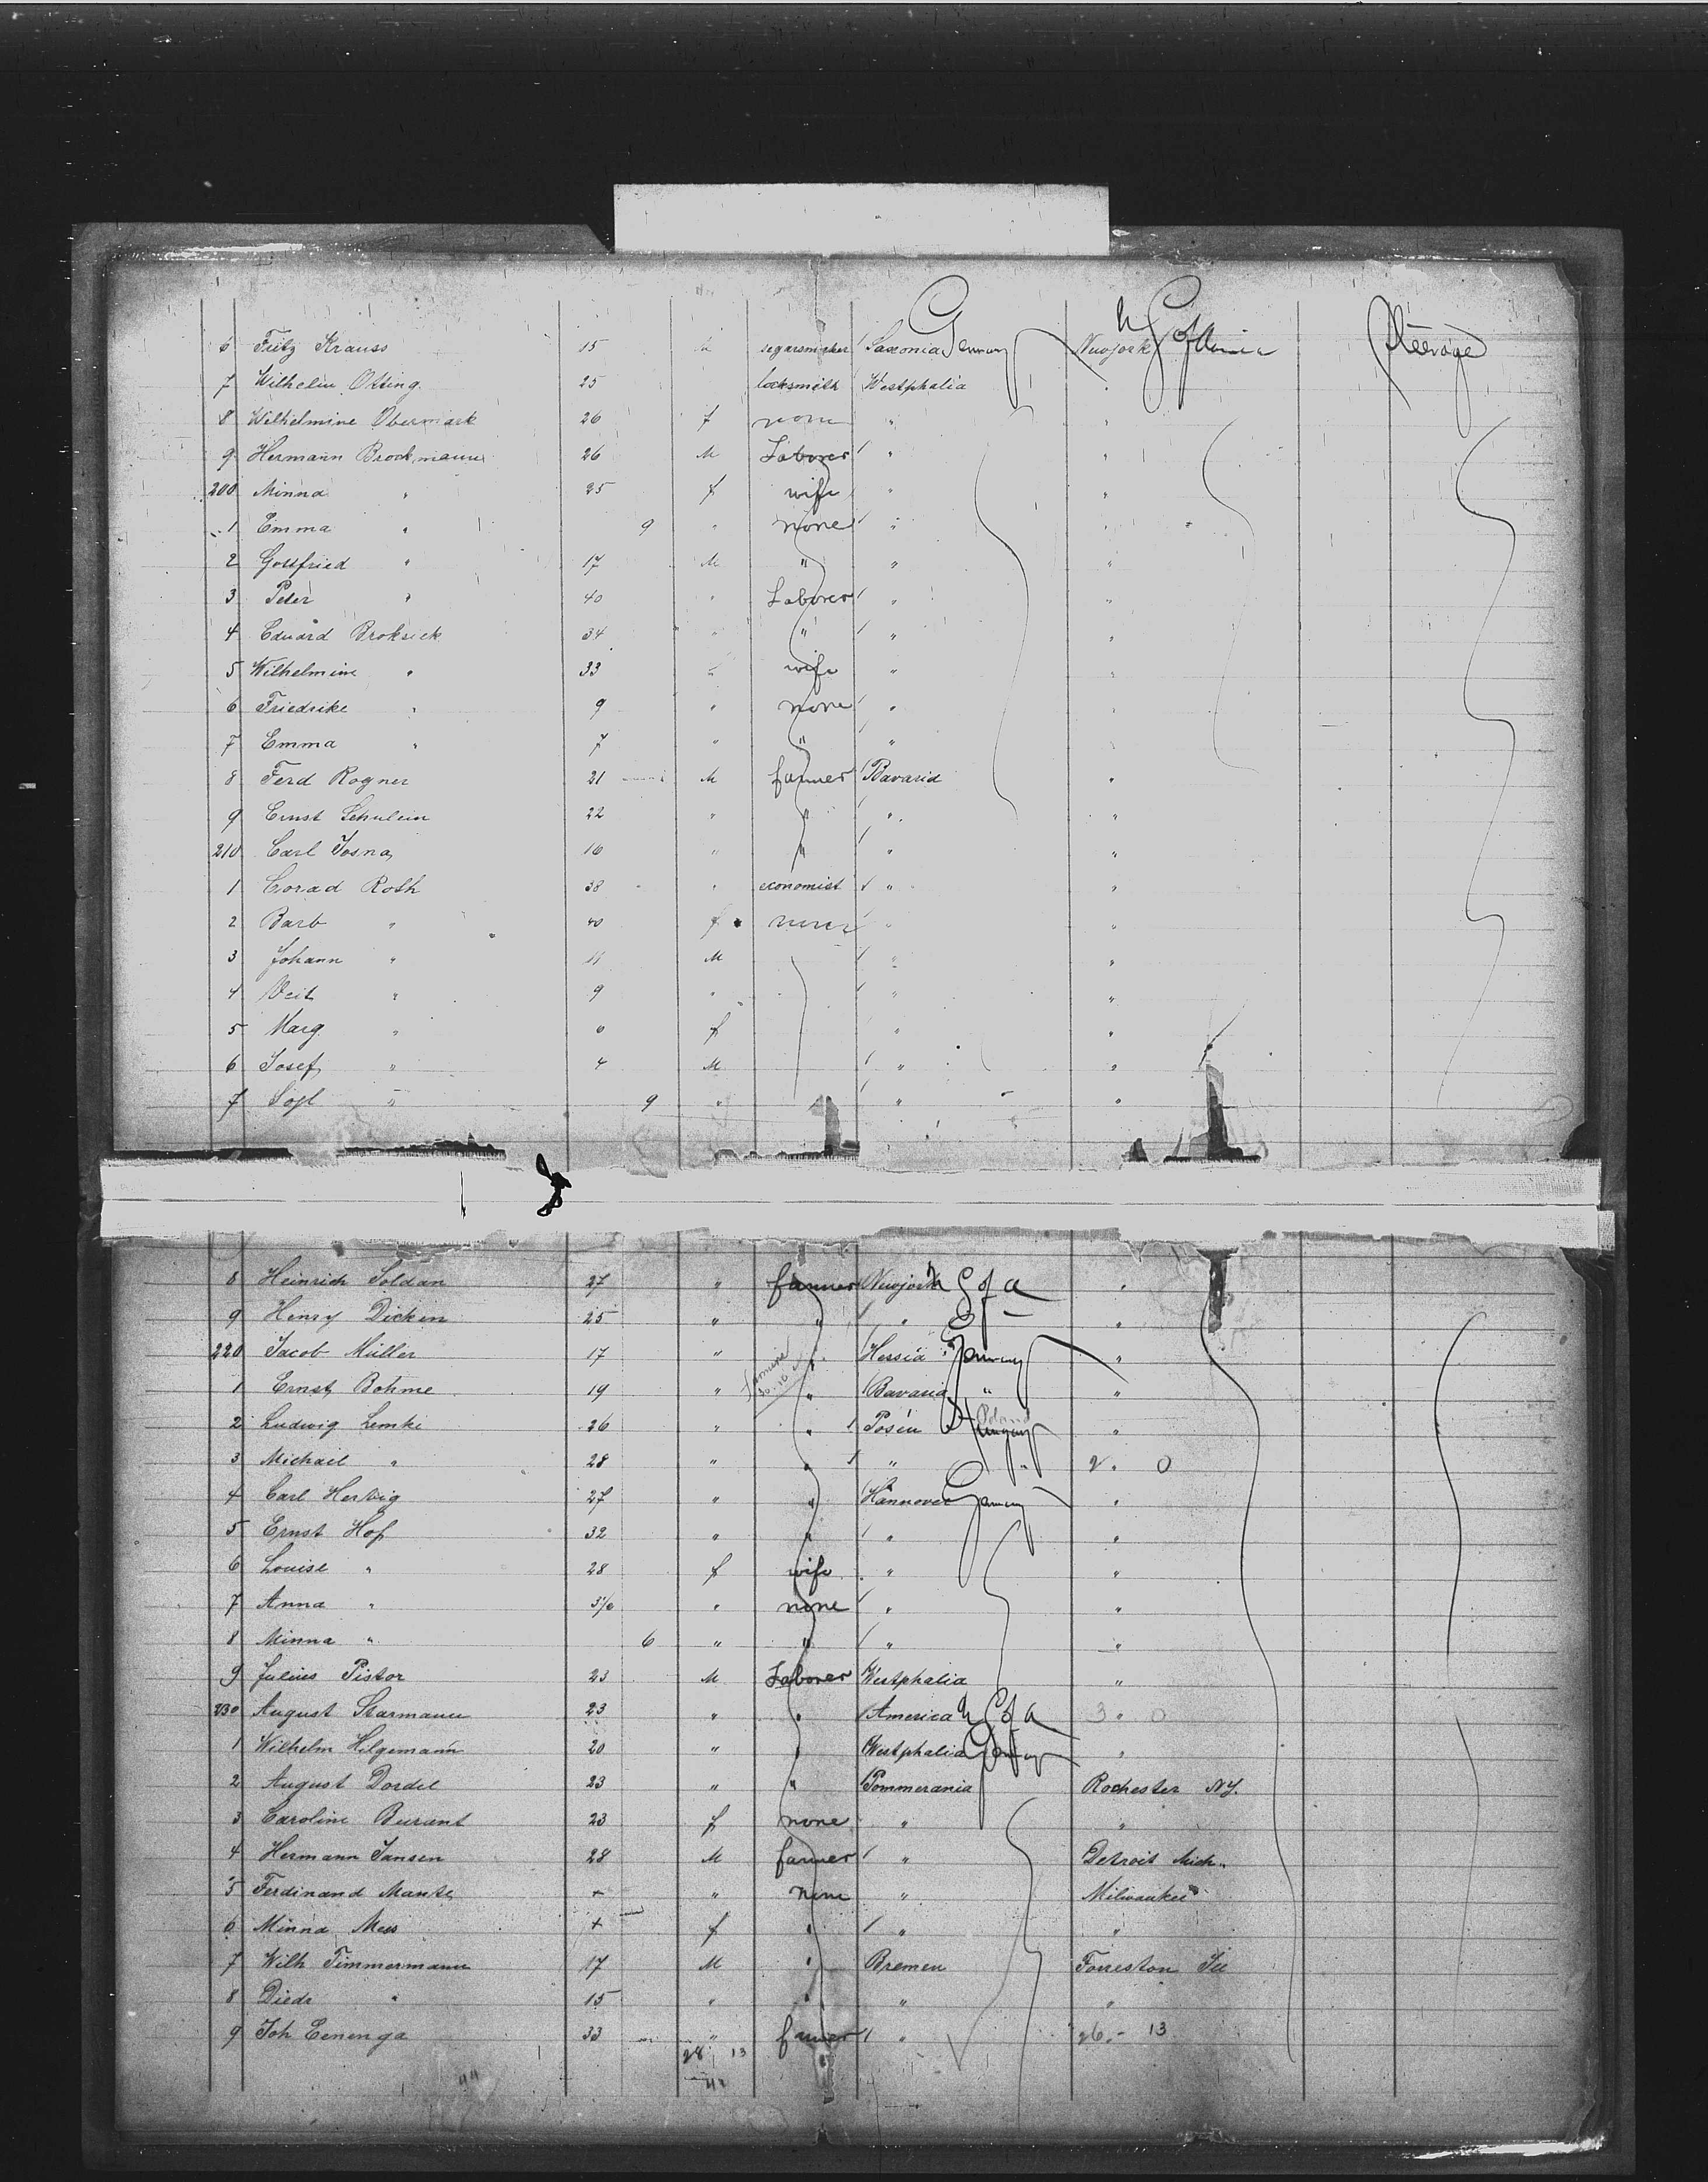 6 Fritz Krauss 15 segarsmaker Saxonia Germany Newjork U S of America Steerage
7 Wilhelm Otting 25 locksmith Westphalia
8 Wilhelmine Obermark 26 f none "
9 Hermann Brockmann 26 M Laborer " "
200 Minna " 25 f wife " "
1 Emma " 9 " none " "
2 Gottfried " 17 M " " "
3 Peter " 40 " Laborer " "
4 Eduard Broksiek 34 " " " "
5 Wilhelmine " 33 wife " "
6 Friedrike " 9 " none " "
7 Emma " 7 " " " "
8 Ferd Rogner 21 M farmer Bavaria "
9 Ernst Schulein 22 " " " "
210 Carl 16 " " " "
1 Corad Roth 38 " economist " "
2 Barb " 40 f none " "
3 Johann " 11 M " "
4 Veit " 9 " " "
5 Marg. " 6 f " "
6 Josef " 4 M " "
7 " 9 " " "
8 Heinrich Soldan 27 " farmer Newjork U S of A "
9 Henry Dicken 25 " " " "
220 Jacob Müller 17 " " Hessia Germany "
1 Ernst Bohme 19 " " Bavaria " "
2 Ludwig Lemke 26 " " Posen Poland "
3 Michael " 28 " " " " 2. 0
4 Carl Hertwig 27 " " Hannover Germany "
5 Ernst Hof 32 " " " "
6 Louise " 28 f wife " "
7 Anna " " none " "
8 Minna " 6 " " " "
9 Julius Pistor 23 M Laborer Westphalia "
230 August Starmann 23 " " America U S of A 3 " 0
1 Wilhelm Hilgemann 20 " " Westphalia Germany "
2 August Dordel 23 " " Pommerania Rochester NY.
3 Caroline Burant 23 f none " "
4 Hermann Jansen 28 M farmer " Detroit Mich.
5 Ferdinand Mante + " none " Milwaukee
6 Minna + f " " "
7 Wilh Timmermann 17 M " Bremen Forreston Ill
8 Diedr " 15 " " " "
9 Joh Eenenga 33 " farmer " 26. - 13
28 13